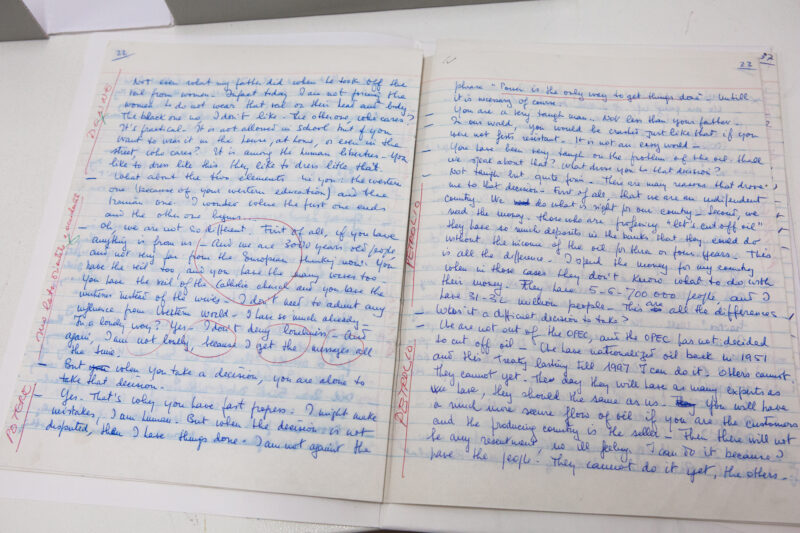 22
Not even what my father did when he took off the
veil from women. In fact today I am not forcing the
women to do not wear that veil on their head and body.
The black one no, I don't like. The other one, who cares?
It's practical. It is not allowed in school but if you
want to wear it in the house, at home, or even in the
street, who cares? It is among the human liberties. You
like to dress like this, they like to dress like that.
— What about the two elements in you: the western
one (because of your western education) and the
Iranian one. I wonder where the first one ends
and the other one begins...
— Oh, we are not so different. First of all, if you have
anything is from us. And we are 3000 years old people,
and not very far from the European thinking now. You
have the veil too, and you have the many wives too.
You have the veil of the Catholic church and you have the
of the wives. I don't need to admit any
influence from Western world. I have so much already.
— In a lonely way? Yes. I don't deny loneliness. And
again, I am not lonely, because I get the messages all
the time.
— But when you take a decision, you are alone to
take that decision.
— Yes. That's why you have fast progress. I might make
mistakes, I am human. But when the decision is not
disputed, then I have things done. I am not against the
POTERE
23
phrase "Power is the only way to get things done". Until
it is necessary of course.
— You are a very tough man. Not less than your father.
— In our world, you would be crushed just like that if you
were not
resistant. It is not an easy world.
— You have been very tough on the problem of the oil. Shall
we speak about that? What drove you to that decision?
— Not tough but quite firm. There are many reasons that drove
me to that decision. First of all, that we are an independent
country. We do what is right for our country. Second, we
need the money. Those who are professing "let's cut off oil"
they have so much deposits in the banks that they could do
without the income of the oil for three or four years. This
is all the difference. I spend the money for my country
when in those cases they don't know what to do with
their money. They have 5-6-700.000 people, and I
have 31-32 million people. This are all the differences.
— Wasn't it a difficult decision to take?
— We are not out of the OPEC, and the OPEC has not decided
to cut off oil. We have nationalized oil back in 1951
and this Treaty lasting till 1997 I can do it. Others cannot.
They cannot yet. The day they will have as many experts as
we have, they should the same as us. You will have
a much more secure flow of oil if you are the customers
and the producing country is the seller. Then there will not
be any resentment, no ill feeling. I can do it because I
have the people. They cannot do it yet, the others.
PETROLIO
PETROLIO
32